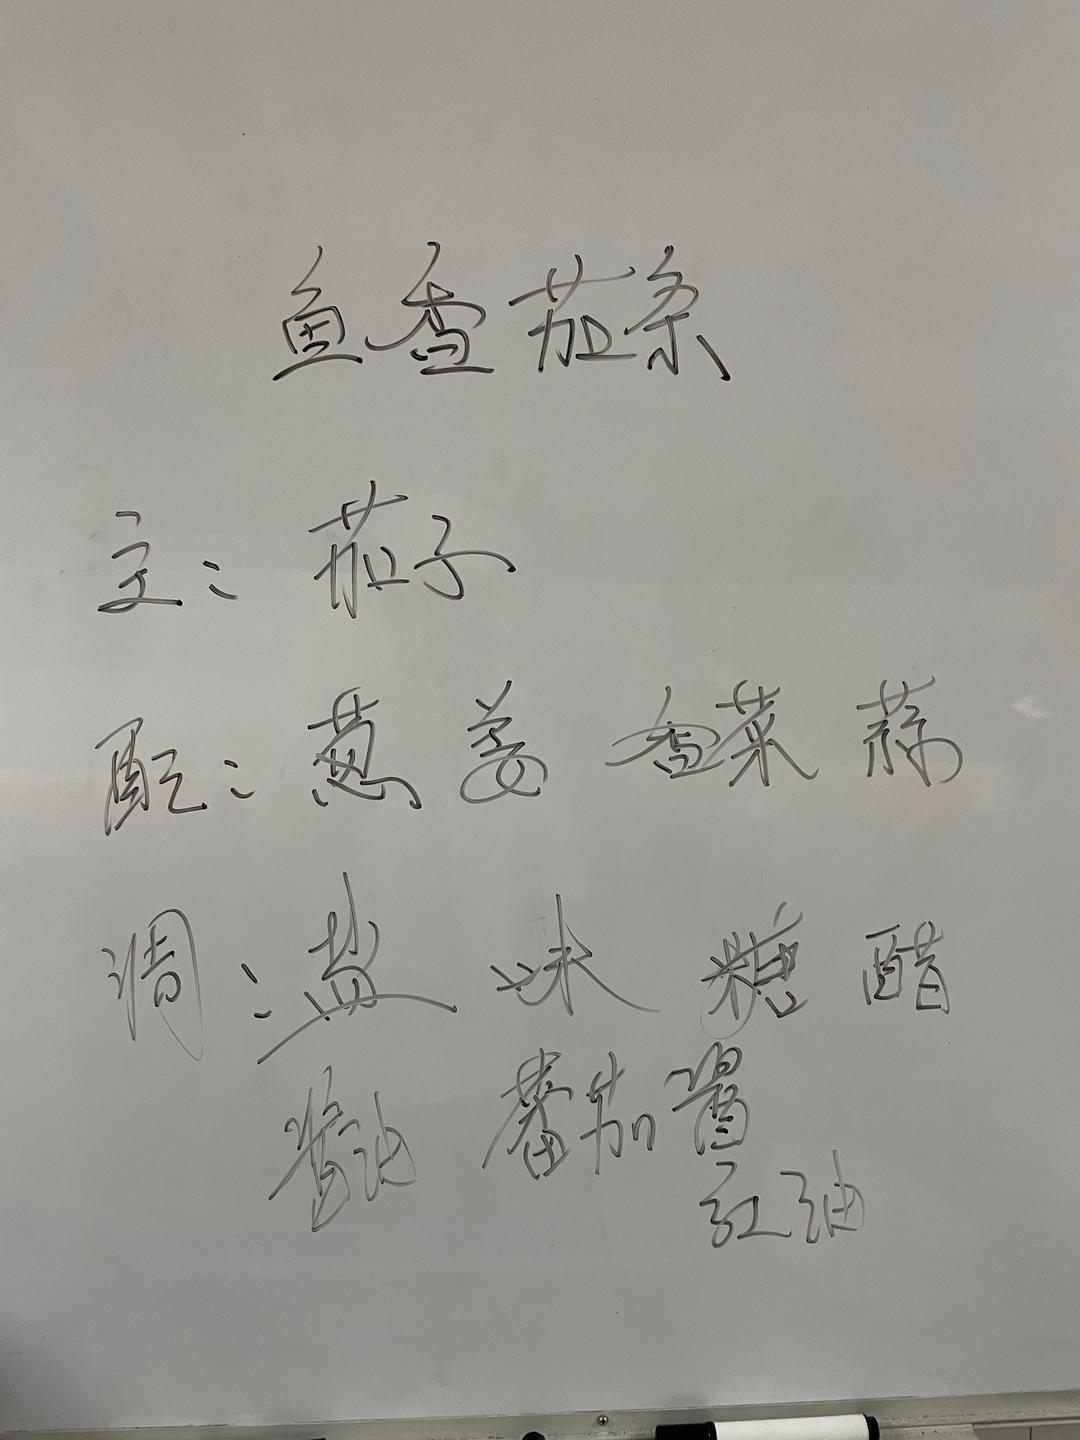 鱼香茄条
主：茄子
配：葱 姜 香菜 蒜
调：盐 味 糖 醋
酱油 蕃茄酱
红油